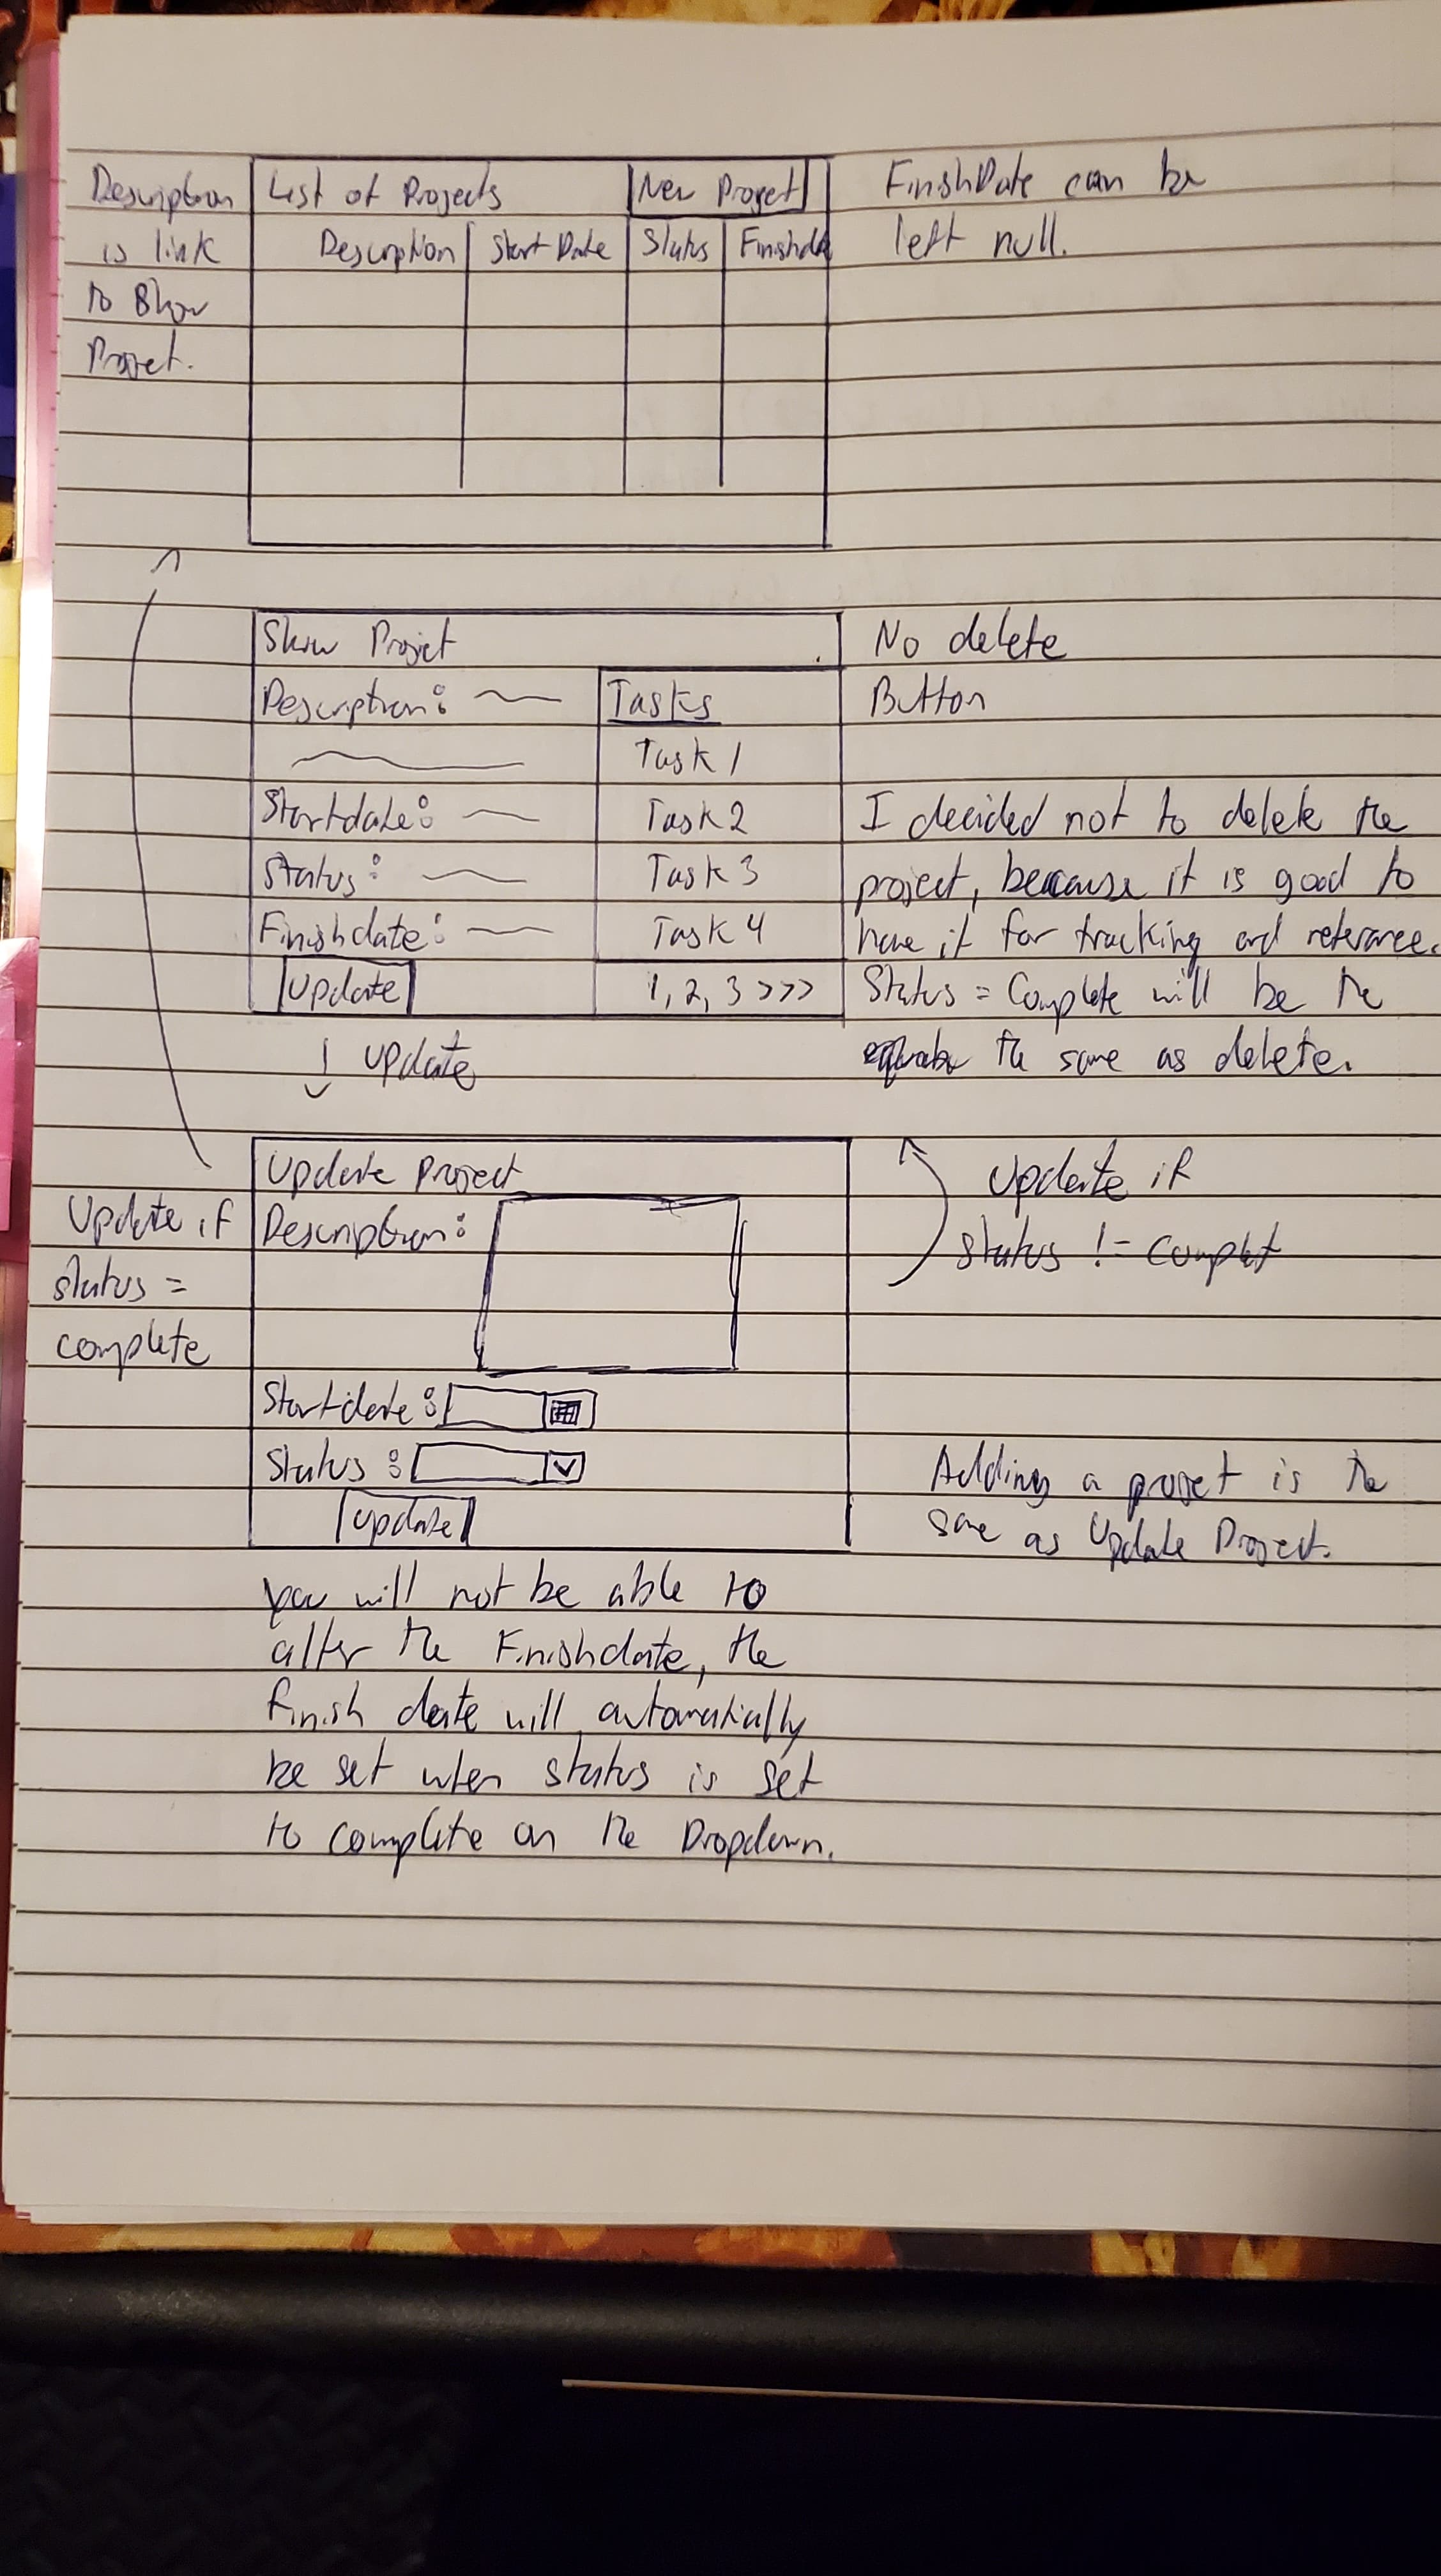 Description
is link
to Show
Project.
List of Projects
New Project
Description
Start Date
Status
Finishda
FinishDate can be
left null.
Show Project
Description:
Startdate:
Status:
Finishdate:
Update
Tasks
Task 1
Task 2
Task 3
Task 4
1, 2, 3 >>>
No delete
Button
I decided not to delete the
project, because it is good to
have it for tracking and referance.
Status = Complete will be the
the same as delete.
update
Update Project
Description:
Startdate:
Status:
Update
Update if
status =
complete
Update if
status != Complet
Adding a project is the
same as Update Project.
you will not be able to
alter the Finishdate, the
finish date will automatically
be set when status is set
to complete on the Dropdown.